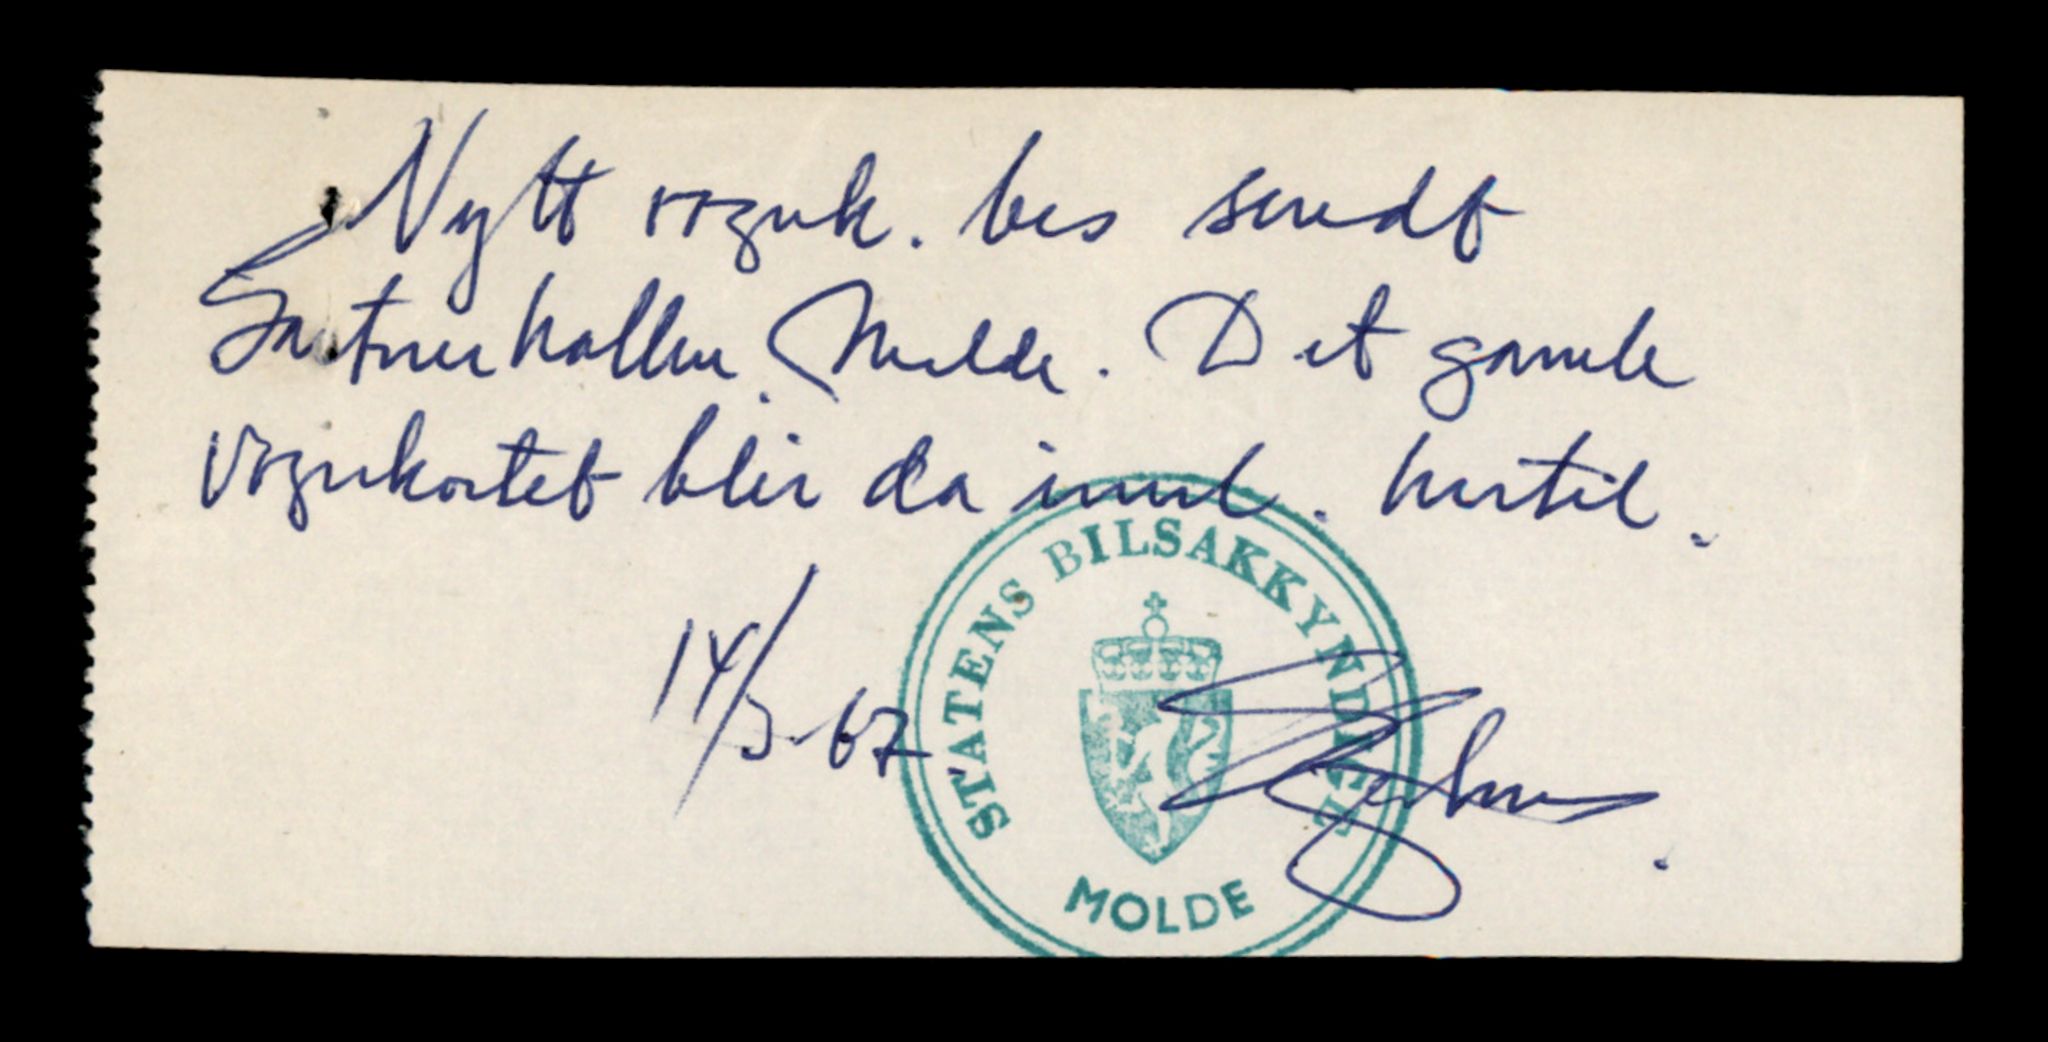 Nytt vognk. bes sendt
Gartnerhallen Molde. Det gamle
vognkortet blir da innl. hertil.
14/3-67
STATENS BILSAKKYNDIGE
MOLDE